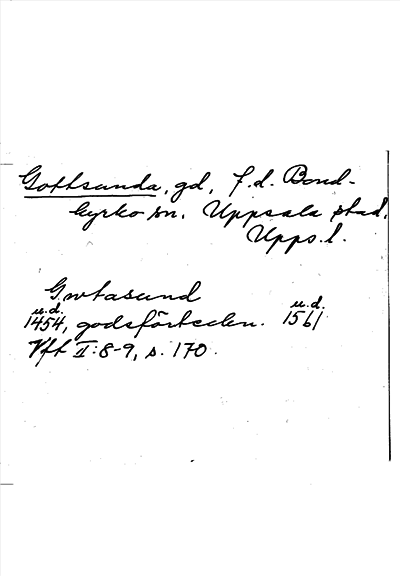 Gottsunda, gd, f.d. Bond-
kyrko sn, Uppsala stad,
Upps. l.
Gwtasund
u.d. u.d.
1454, godsförteckn. 1561
Vft II:8-9, s. 170.